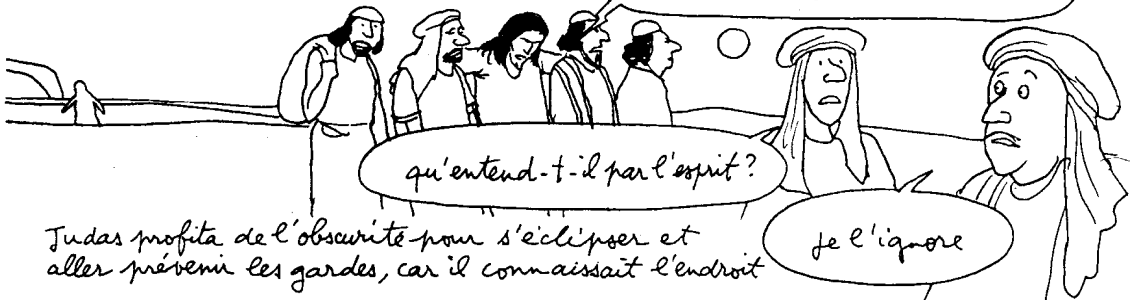 qu'entend-t-il par l'esprit ?
je l'ignore
Judas profita de l'obscurité pour s'éclipser et
aller prévenir les gardes, car il connaissait l'endroit